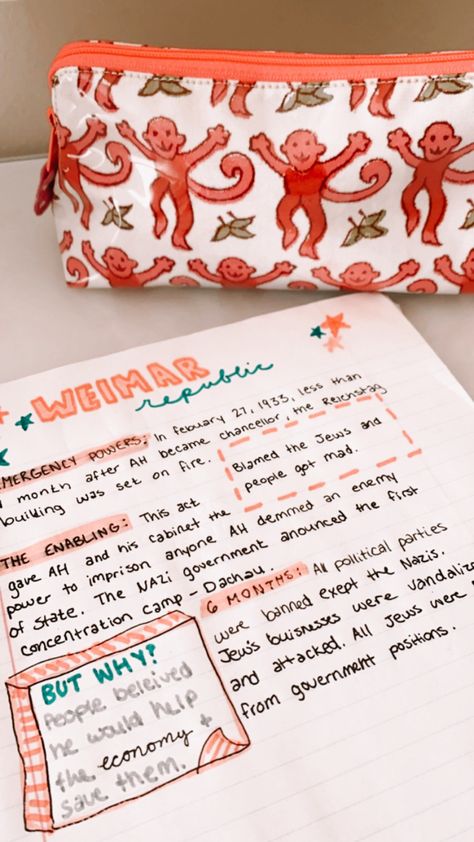 WEIMAR
republic
EMERGENCY POWERS: In febuary 27, 1933, less than
a month after AH became chancellor, the Reichstag
building was set on fire.
Blamed the Jews and
people got mad.
THE ENABLING: This act
gave AH and his cabinet the
power to imprison anyone AH demmed an enemy
of State. The NAZi government anounced the first
concentration camp - Dachau.
6 MONTHS: All political parties
were banned exept the Nazis.
Jew's buisnesses were vandalize
and attacked. All Jews were
from government positions.
BUT WHY?
People beleived
he would help
the economy +
save them.